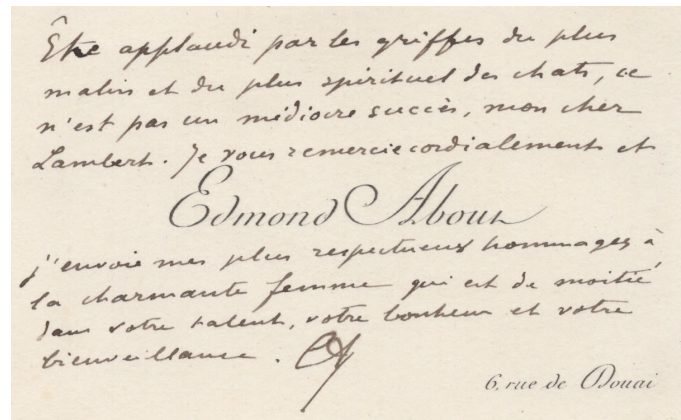 Être applaudi par les griffes du plus
malin et du plus spirituel des chats, ce
n'est pas un médiocre succès, mon cher
Lambert. Je vous remercie cordialement et
Edmond About
j'envoie mes plus respectueux hommages à
la charmante femme qui est de moitié
dans votre talent, votre bonheur et votre
bienveillance. EA
6, rue de Douai